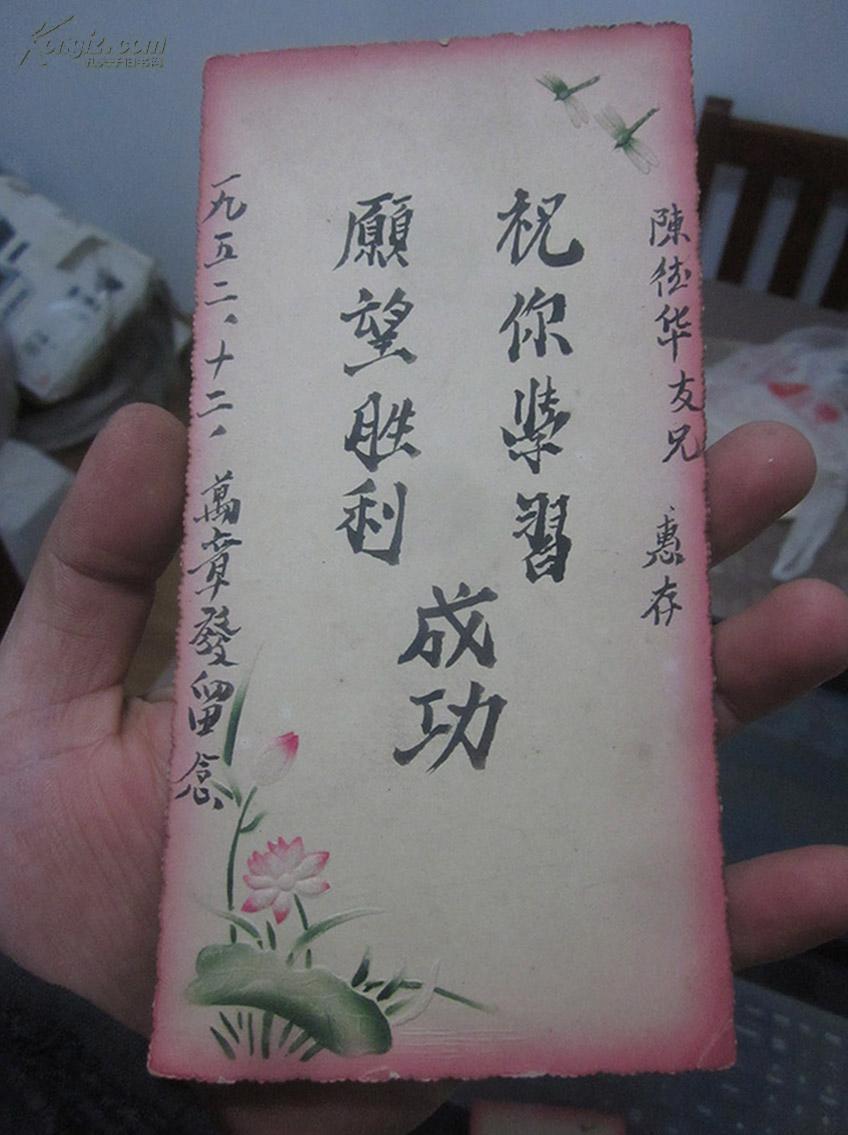 陳德华友兄 惠存
祝你學習
願望胜利
成功
一九五二、十二、萬章發留念
Kongfz.com
孔夫子旧书网